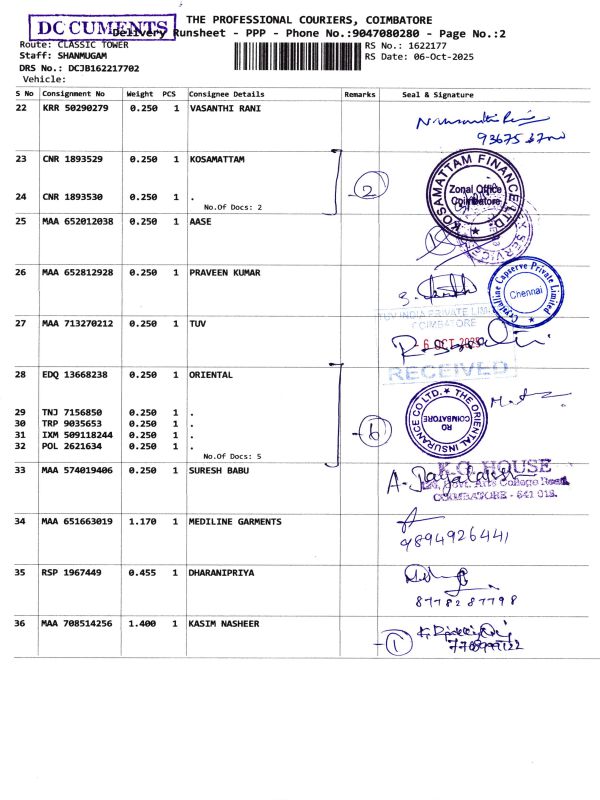 DOCUMENTS
THE PROFESSIONAL COURIERS, COIMBATORE
Delivery Runsheet - PPP - Phone No.:9047080280 - Page No.:2
Route: CLASSIC TOWER
RS No.: 1622177
Staff: SHANMUGAM
RS Date: 06-Oct-2025
DRS No.: DCJB162217702
Vehicle:
S No Consignment No Weight PCS Consignee Details Remarks Seal & Signature
22 KRR 50290279 0.250 1 VASANTHI RANI
23 CNR 1893529 0.250 1 KOSAMATTAM
KOSAMATTAM FINANCE LTD.
Zonal Office
Coimbatore
2
24 CNR 1893530 0.250 1 .
No.Of Docs: 2
25 MAA 652012038 0.250 1 AASE
26 MAA 652812928 0.250 1 PRAVEEN KUMAR
Crystalline Capserve Private Limited
Chennai
27 MAA 713270212 0.250 1 TUV
TUV INDIA PRIVATE LIMI
COIMBATORE
- 6 OCT 2025
RECEIVED
28 EDQ 13668238 0.250 1 ORIENTAL
THE ORIENTAL INSURANCE CO LTD.
RO
COIMBATORE
29 TNJ 7156850 0.250 1 .
30 TRP 9035653 0.250 1 .
31 IXM 509118244 0.250 1 .
6
32 POL 2621634 0.250 1 .
No.Of Docs: 5
33 MAA 574019406 0.250 1 SURESH BABU
K.G. HOUSE
Govt. Arts College Road,
COIMBATORE - 641 018.
34 MAA 651663019 1.170 1 MEDILINE GARMENTS
9894926441
35 RSP 1967449 0.455 1 DHARANIPRIYA
87782 87798
36 MAA 708514256 1.400 1 KASIM NASHEER
1